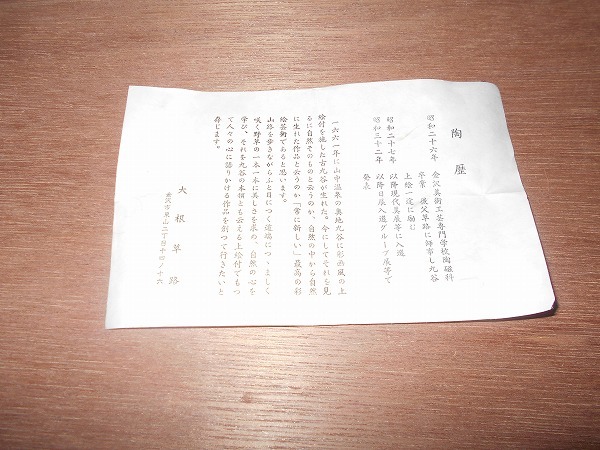 陶歴
昭和二十六年 金沢美術工芸専門学校陶磁科
卒業 後父草路に師事し九谷
上絵一筋に励む
昭和二十七年 以降現代美展等に入選
昭和三十二年 以降日展入選グループ展等で
発表
一六六一年に山中温泉の奥地九谷に彩画風の上
絵付を施した古九谷が生れた。今にしてそれを見
るに自然そのものと云うのか、自然の中から自然
に生れた作品と云うのか「常に新しい」最高の彩
絵芸術であると思います。
山路を歩きながらふと目につく道端につゝましく
咲く野草の一本一本に美しさを求め、自然の心を
学び、それを九谷の本領とも云える上絵付でもっ
て人々の心に語りかける作品を創って行きたいと
存じます。
大根草路
金沢市東山二丁目十四ノ十六